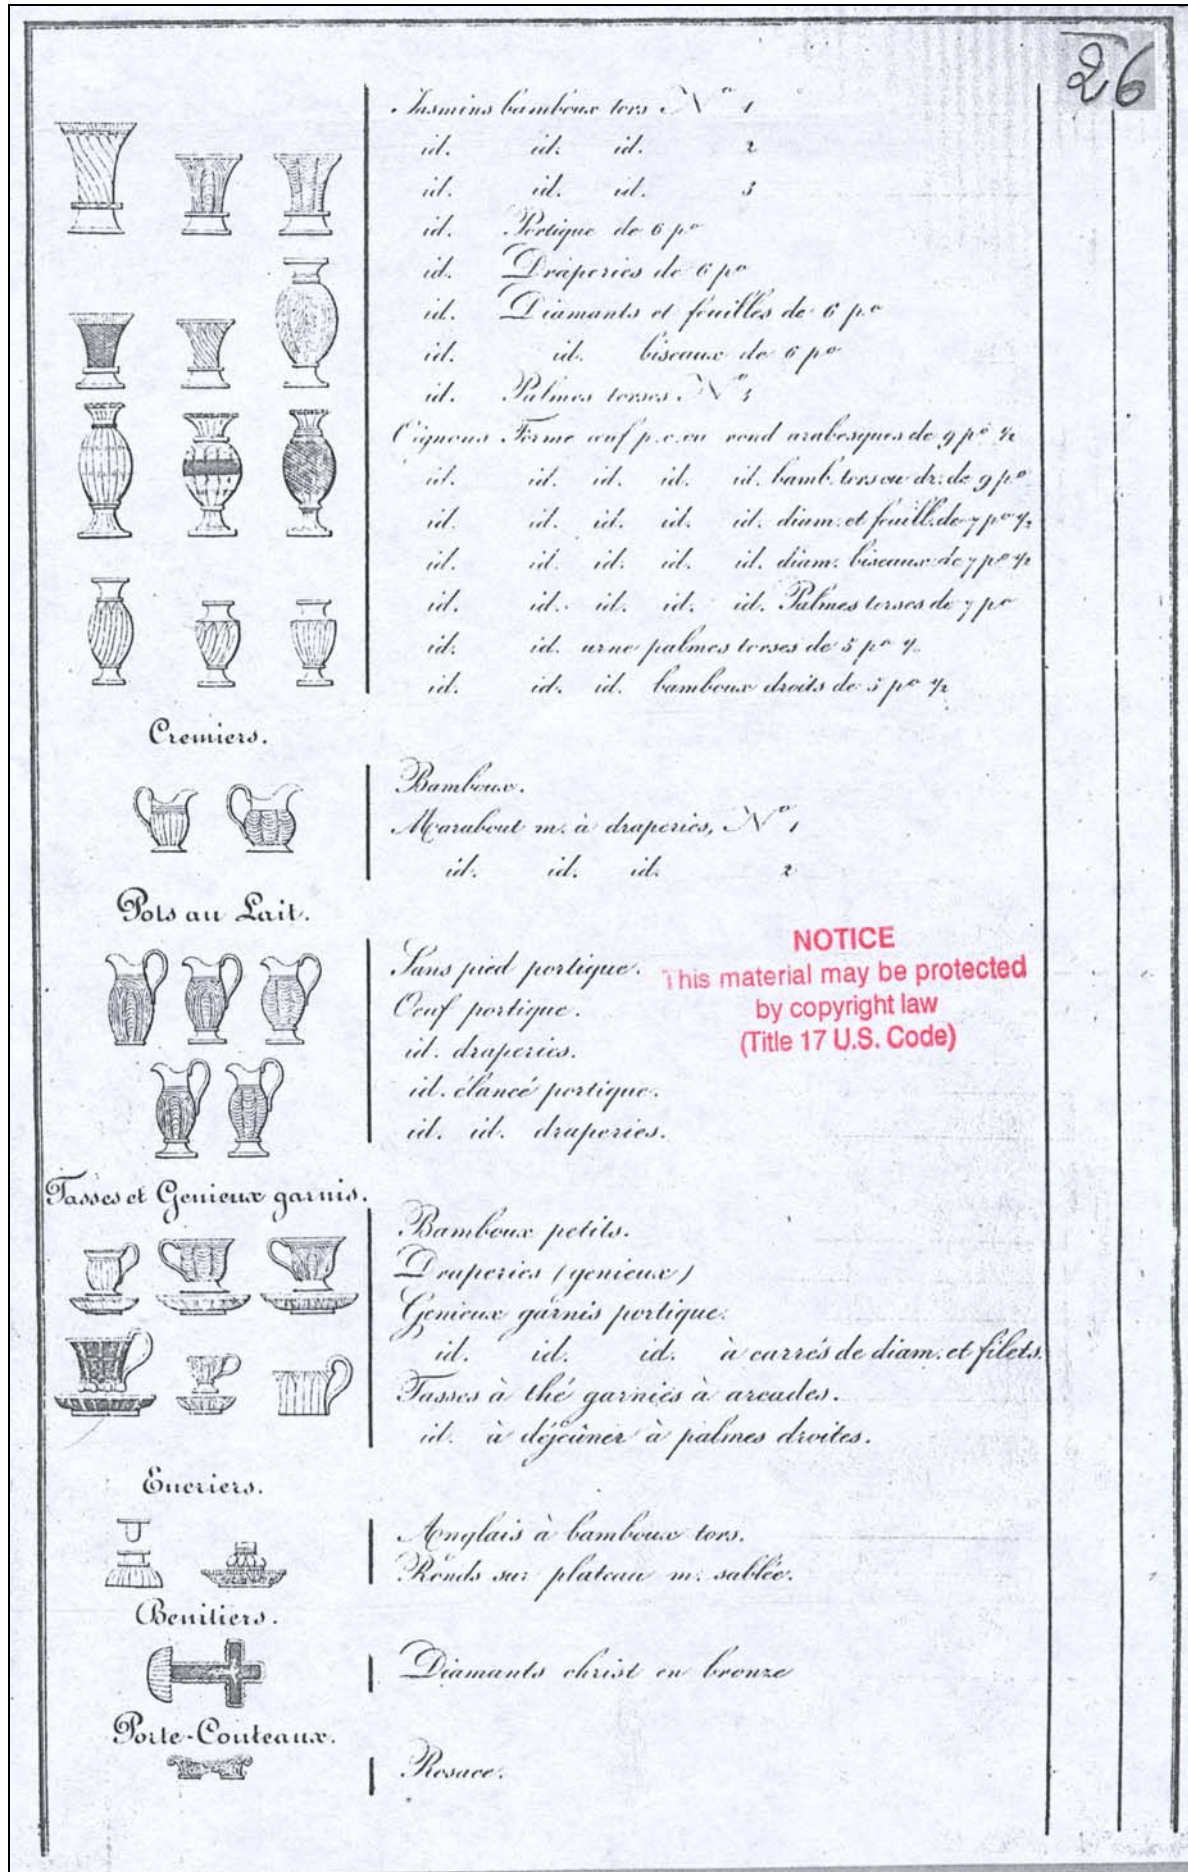 26
Jasmins bamboux tors Nº 1
id. id. id. 2
id. id. id. 3
id. Portique de 6 po
id. Draperies de 6 po
id. Diamants et feuilles de 6 po
id. id. biseaux de 6 po
id. Palmes torses. Nº 3
Oignons Forme œuf p.c. ou rond arabesques de 9 po ½
id. id. id. id. id. bamb. tors ou dr. de 9 po
id. id. id. id. id. diam. et feuill. de 7 po ½
id. id. id. id. id. diam. biseaux de 7 po ½
id. id. id. id. id. Palmes torses de 7 po
id. id. urne palmes torses de 5 po ½
id. id. id. bamboux droits de 5 po ½
Cremiers.
Bamboux.
Marabout m. à draperies, Nº 1
id. id. id. 2
Pots au Lait.
Sans pied portique.
Oeuf portique.
id. draperies.
id. élancé portique.
id. id. draperies.
NOTICE
This material may be protected
by copyright law
(Title 17 U.S. Code)
Tasses et Genieux garnis.
Bamboux petits.
Draperies (genieux)
Genieux garnis portique.
id. id. id. à carrés de diam. et filets.
Tasses à thé garnies à arcades.
id. à déjeûner à palmes droites.
Encriers.
Anglais à bamboux tors.
Ronds sur plateau m. sablée.
Benitiers.
Diamants christ en bronze
Porte-Couteaux.
Rosace.